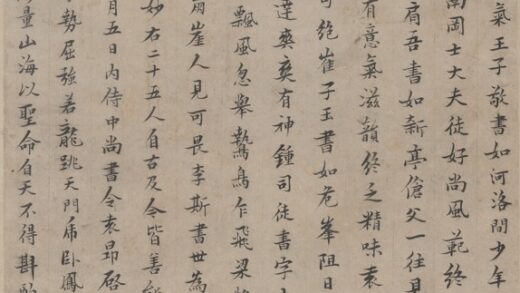 氣王子敬書如河洛間少年
南岡士大夫徒好尚風範終
肩吾書如新亭傖父一往見
有意氣滋韻終乏精味袁
可絕崔子玉書如危峯阻日
達爽爽有神鍾司徒書字
飄風忽舉鷙鳥乍飛梁
崖人見可畏李斯書世為
妙右二十五人自古及今皆善
月五日內侍中尚書令袁昂啓
勢屈強若龍跳天門虎卧鳳
量山海以聖命自天不得斟